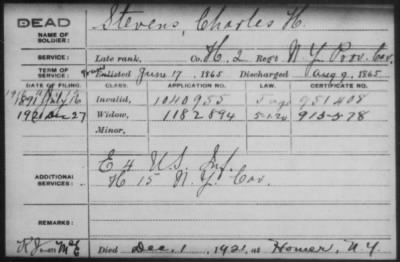 DEAD
NAME OF SOLDIER: Stevens, Charles H.
SERVICE: Late rank, Co. H, 2 Reg't N.Y. Prov. Cav.
TERM OF SERVICE: Enlisted June 17, 1865 Discharged Aug 9, 1865
DATE OF FILING. CLASS. APPLICATION NO. LAW. CERTIFICATE NO.
1891 July 16 Invalid, 1040955 951408
1921 Dec 27 Widow, 1182894 915578
Minor,
ADDITIONAL SERVICES: E 4 U.S. Inf.
H 15 N.Y. Cav.
REMARKS:
Died Dec. 1, 1921, at Homer, N.Y.